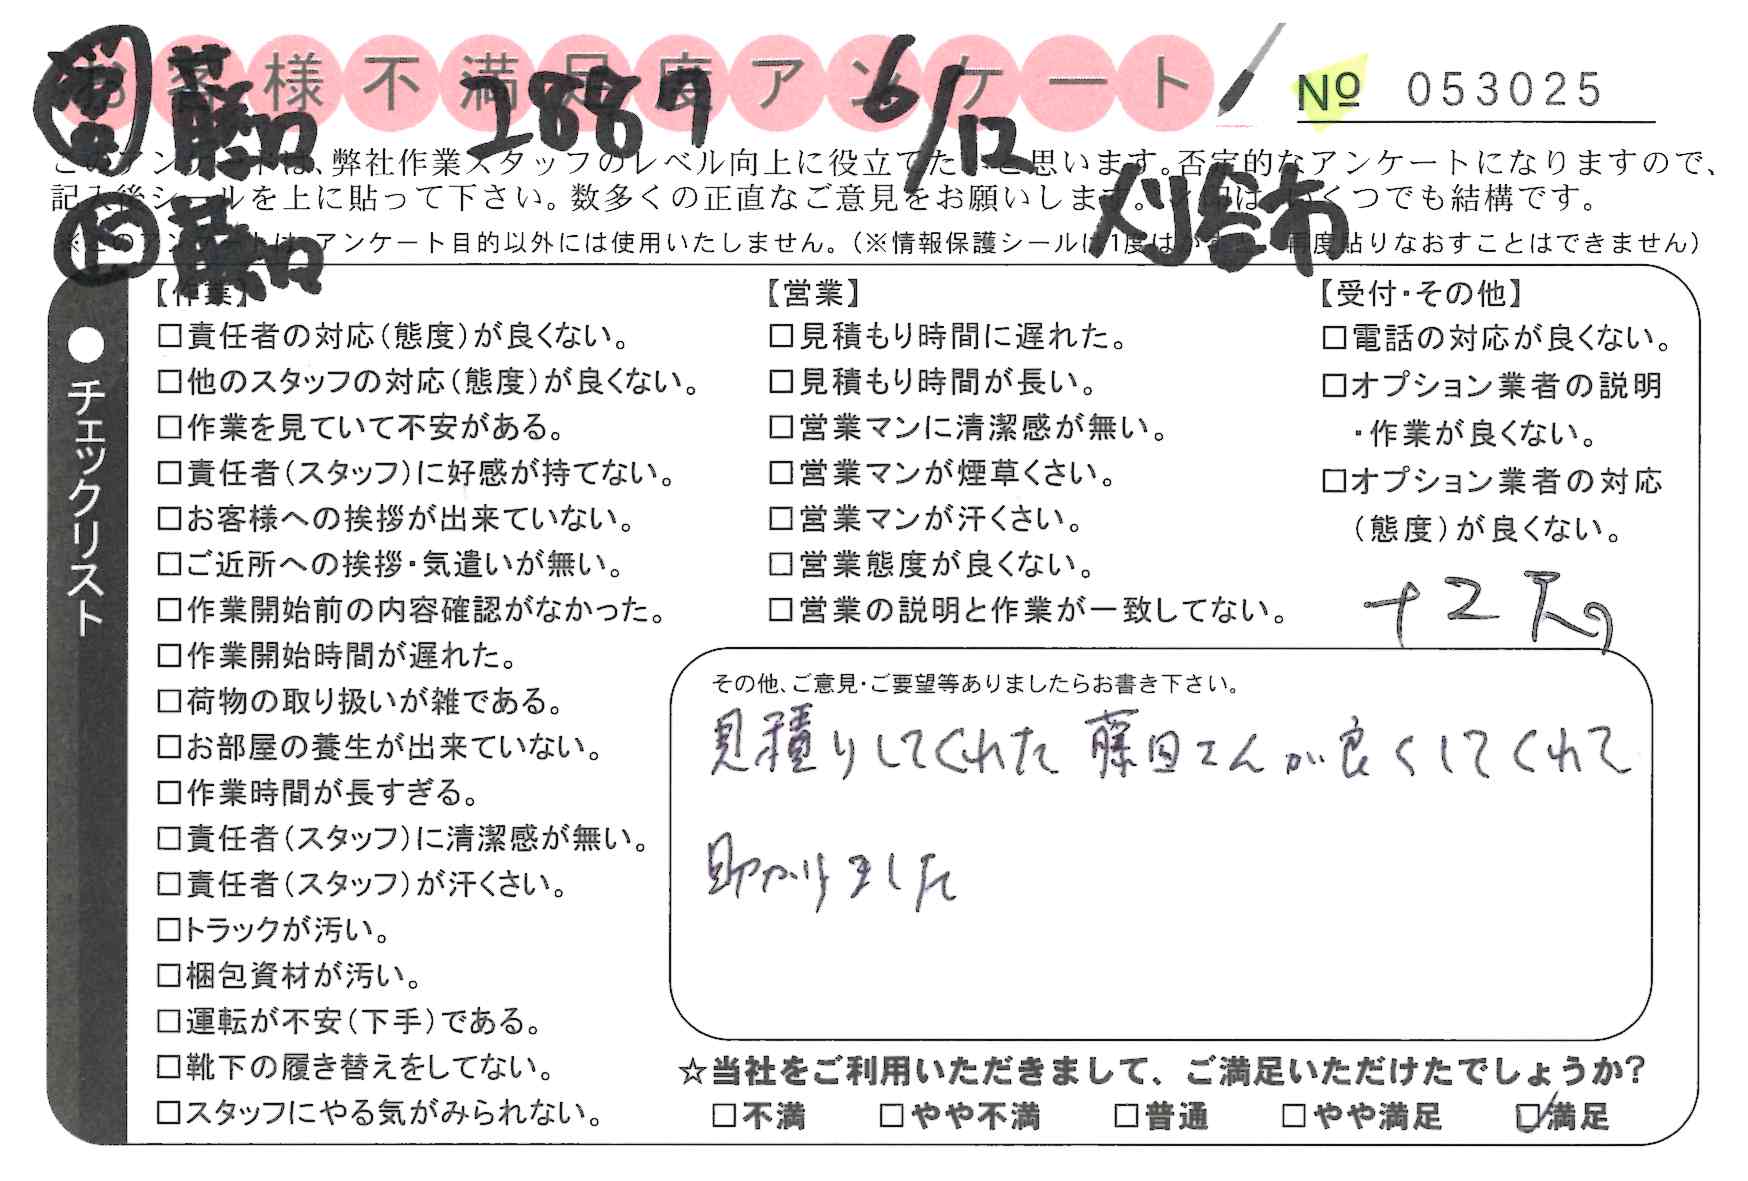 お客様不満足度アンケート
№ 053025
2887 6/12
刈谷市
このアンケートは、弊社作業スタッフのレベル向上に役立てたいと思います。否定的なアンケートになりますので、
記入後シールを上に貼って下さい。数多くの正直なご意見をお願いします。 くつでも結構です。
※このアンケートは、アンケート目的以外には使用いたしません。(※情報保護シールは1度はがすと、再度貼りなおすことはできません)
●チェックリスト
【作業】
□責任者の対応(態度)が良くない。
□他のスタッフの対応(態度)が良くない。
□作業を見ていて不安がある。
□責任者(スタッフ)に好感が持てない。
□お客様への挨拶が出来ていない。
□ご近所への挨拶・気遣いが無い。
□作業開始前の内容確認がなかった。
□作業開始時間が遅れた。
□荷物の取り扱いが雑である。
□お部屋の養生が出来ていない。
□作業時間が長すぎる。
□責任者(スタッフ)に清潔感が無い。
□責任者(スタッフ)が汗くさい。
□トラックが汚い。
□梱包資材が汚い。
□運転が不安(下手)である。
□靴下の履き替えをしてない。
□スタッフにやる気がみられない。
【営業】
□見積もり時間に遅れた。
□見積もり時間が長い。
□営業マンに清潔感が無い。
□営業マンが煙草くさい。
□営業マンが汗くさい。
□営業態度が良くない。
□営業の説明と作業が一致してない。
【受付・その他】
□電話の対応が良くない。
□オプション業者の説明
・作業が良くない。
□オプション業者の対応
(態度)が良くない。
その他、ご意見・ご要望等ありましたらお書き下さい。
見積りしてくれた藤田さんが良くしてくれて
助かりました
☆当社をご利用いただきまして、ご満足いただけたでしょうか?
□不満 □やや不満 □普通 □やや満足 ☑満足